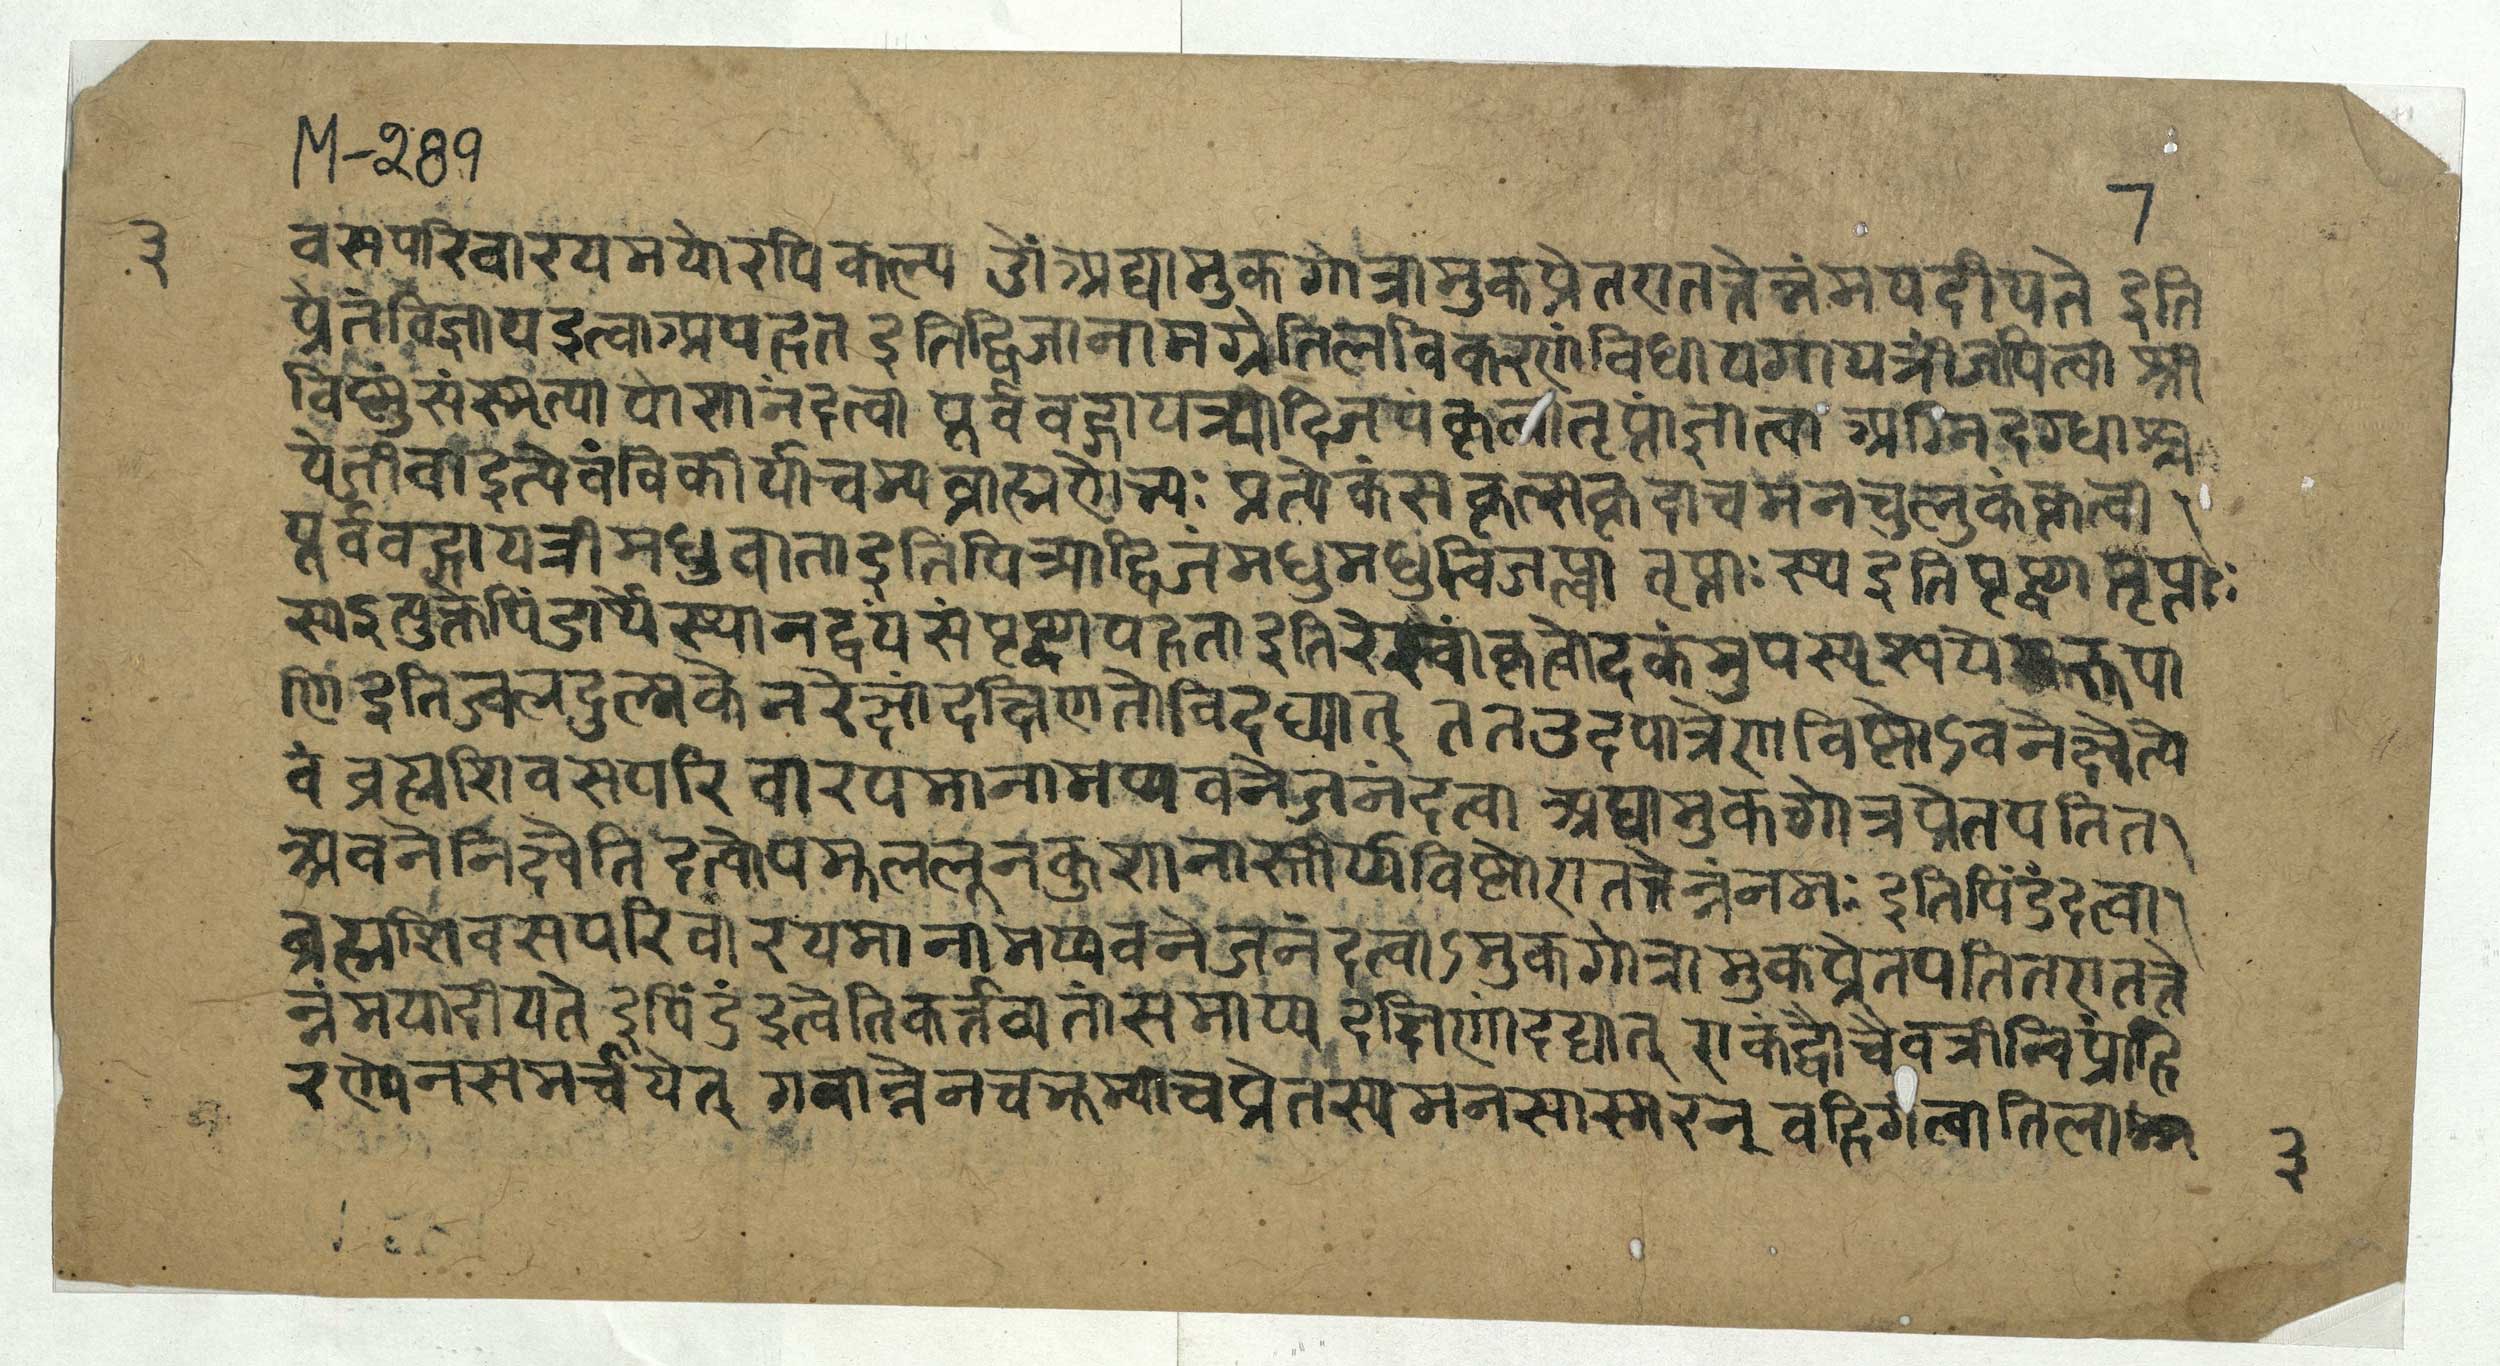 M-289
7
३
वसपरिवारयमयोरपिकल्प्य ॐअद्यामुकगोत्रामुकप्रेतएतत्तेन्नंमपदीयते इति
प्रेतंविज्ञाप्यइत्वाअपहत इतिद्विजानामग्रेतिलविकरणंविधायगायत्रीजपित्वा श्री
विष्णुंसंस्मृत्यापोशानंदत्वा पूर्ववद्गायत्र्यादिजपंकृत्वातृप्तांज्ञात्वा अग्निदग्धाश्च
येतीवाइत्येवंविकीर्याचम्यब्राह्मणेभ्यः प्रत्येकंसकृत्सकृदाचमनचुलुकंकृत्वा
पूर्ववद्गायत्रीमधुवाताइतिपित्र्याद्विजंमधुमध्वितिजप्त्वा तृप्ताःस्थइतिपृष्ट्वातृप्ताः
स्मइत्युक्तेपिंडार्थेस्थानद्वयंसंपृष्ट्वापहताइतिरेखांकृत्वोदकंमुपस्पृश्यये रूपा
णिइतिज्वलदुल्मुकेनरेखांदक्षिणतोविदध्यात् ततउदपात्रेणविष्णोऽवनेक्ष्वेत्ये
वंब्रह्मशिवसपरिवारयमानामप्यवनेजनंदत्वा अद्यामुकगोत्रप्रेतपतित
अवनेनिक्ष्वेतिदत्वोपमूललूनकुशानास्तीर्यविष्णोएतत्तेन्नंनमः इतिपिंडंदत्वा
ब्रह्मशिवसपरिवारयमानामप्यवनेजनंदत्वाऽमुकगोत्रामुकप्रेतपतितएतत्ते
न्नंमयादीयते इपिंडंइत्वेतिकर्त्तव्यतांसमाप्य दक्षिणांदद्यात् एकंद्वौचैवत्रीन्विप्रांहि
रण्येनसमर्च्चयेत् गवान्नेनचभूम्याचप्रेतस्यमनसास्मरन् वहिर्गत्वातिला
३